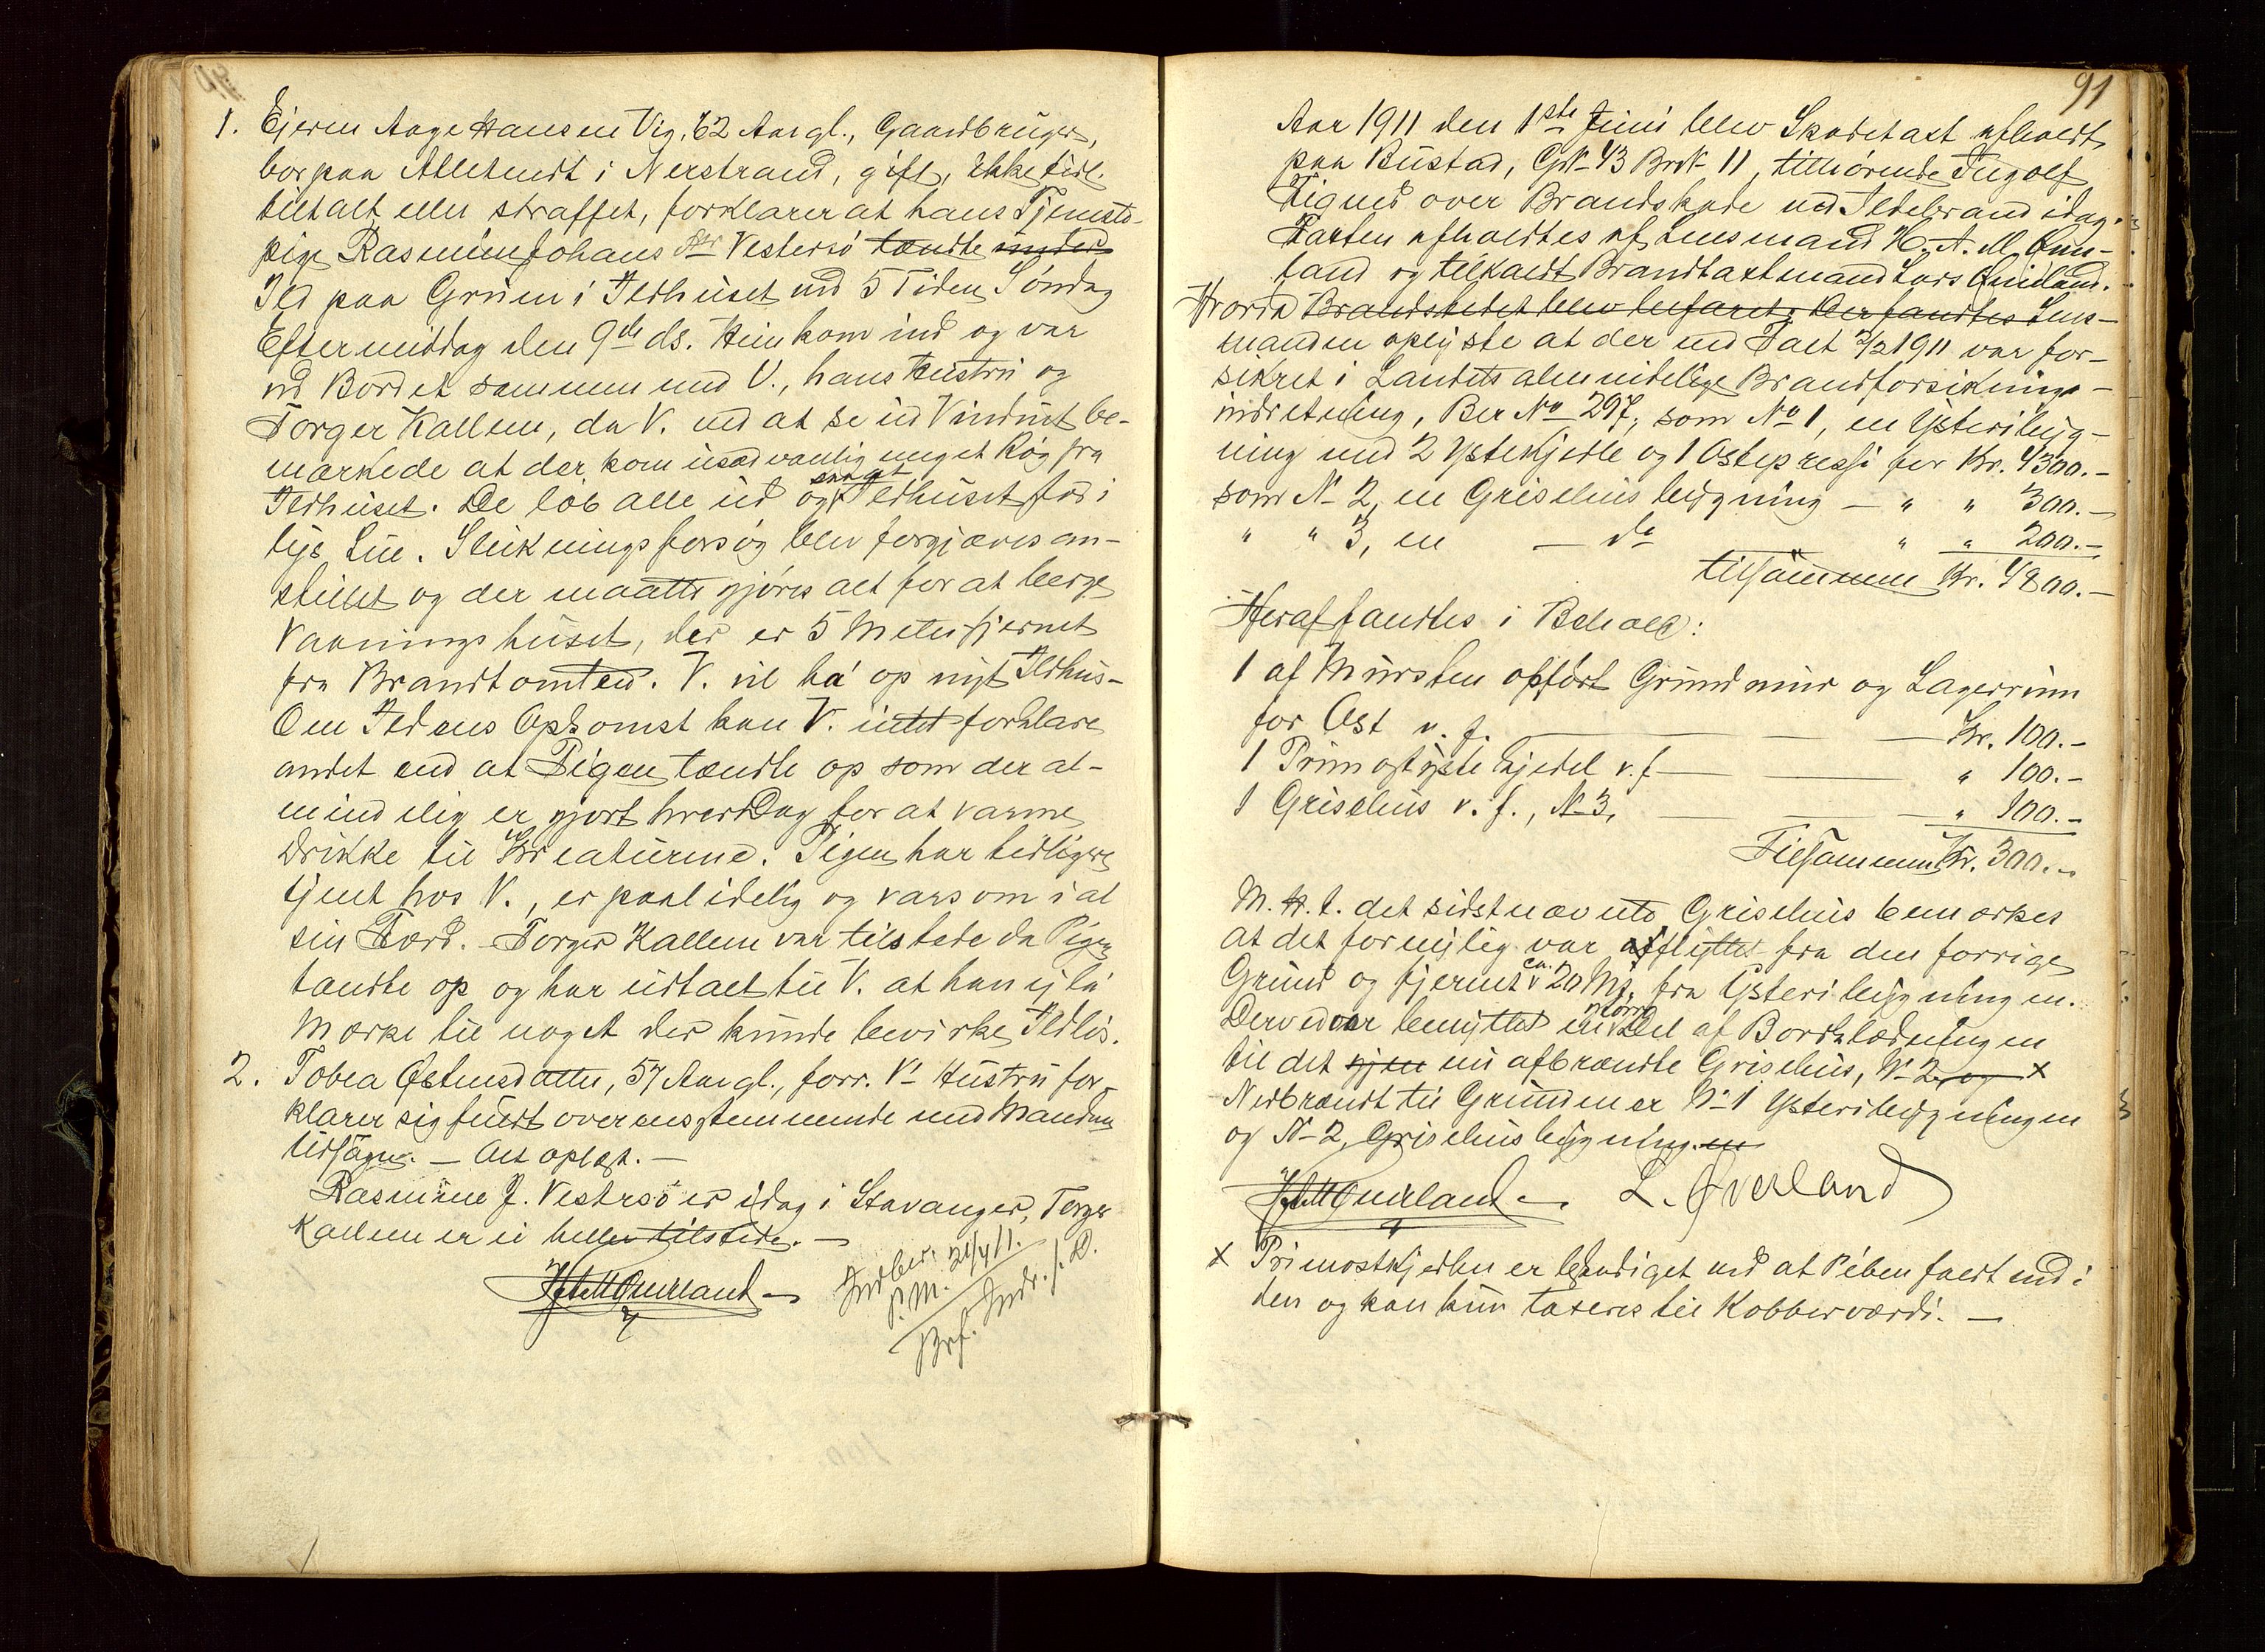 1. Ejeren Aage Hansen Vig, 62 Aar gl., Gaardbruger,
bor paa i Nerstrand, gift, ikke tidl.
tiltalt eller straffet, forklarer at hans Tjeneste-
pige Rasmine Johansdtr Vestersö tændte
Ild paa Gruen i Ildhuset ved 5 Tiden Søndag
Eftermiddag den 9de ds. Hun kom ind og var
ved Bordet sammen med V., hans Hustru og
Torger Kallem, da V. ved at se ud Vinduet be-
mærkede at der kom usædvanlig meget Røg fra
Ildhuset. De løb alle ud og saa at Ildhuset stod i
lys Lue. Slukningsforsøg blev forgjæves an-
stillet og der maatte gjøres alt for at berge
Vaaningshuset, der er 5 Meter fjernet
fra Brandtomten. V. vil ha' op nyt Ildhus.
Om Ildens Opkomst kan V. intet forklare
andet end at Pigen tændte op som der al-
mindelig er gjort hver Dag for at varme
Drikke til Kreaturene. Pigen har tidligere
tjent hos V., er paalidelig og varsom i al
sin Færd. - Torger Kallem var tilstede da Pigen
tændte op og har udtalt til V. at han ej la
Mærke til noget der kunde bevirke Ildløs.
2. Tobea Østensdatter, 57 Aar gl., forr. V's Hustru for-
klarer sig fuldt overensstemmende med Mandens
Udsagn. - Alt oplæst. -
Rasmine J. Vestersö er idag i Stavanger, Torger
Kallem er ei heller tilstede. -
H.A.M. Qverland -
Indber.
P.M. 21/4 11.
Brf. Indr. s. D.
91
Aar 1911 den 1ste Juni blev Skadetaxt afholdt
paa Bustad, Gr N 43 Br N 11, tilhørende Ingolf
over Brandskade ved Ildebrand idag.
Taxten afholdtes af Lensmand H. A. M. Qver-
land og tilkaldt Brandtaxtmand Lars Qverland.
Hvorda Brandstedet blev befaret. Der fandtes Lens-
manden oplyste at der ved Taxt 2/2 1911 var for-
sikret i Landets almindelige Brandforsiknings-
indretning, Ber No 297, som No 1, en Ysteribyg-
ning med 2 Ystekjedle og 1 Ostepresse for Kr. 4300.-
som N- 2, en Grisehusbygning - " " 300.-
" " 3, en - do " " 200.-
tilsammen Kr. 4800.-
Heraf fandtes i Behold:
1 af Mursten opført Grundmur og Lagerrum
for Ost v. f. Kr. 100.-
1 Primostystekjedel v.f. " 100.-
1 Grisehus v.f., N- 3, " 100.-
Tilsammen Kr. 300.-
M. H. t. det sidstnævnte Grisehus bemærkes
at det fornylig var afflyttet fra den forrige
Grund og fjernet ca. 20 M. fra Ysteribygningen.
Derved var benyttet en større Del af Bordklædningen
til det nu afbrændte Grisehus, N- 2, og x
Nedbrændt til Grunden er N- 1 Ysteribygningen
og N- 2, Grisehusbygningen
H.A.M. Qverland - L. Øverland
x Primostkjedlen er beskadiget ved at Piben faldt ned i
den og kan kun taxeres til Kobberværdi. -